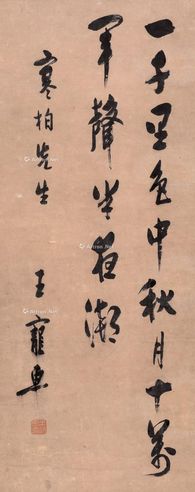 一千里色中秋月十萬
軍聲半夜潮
寒柏先生
王寵惠